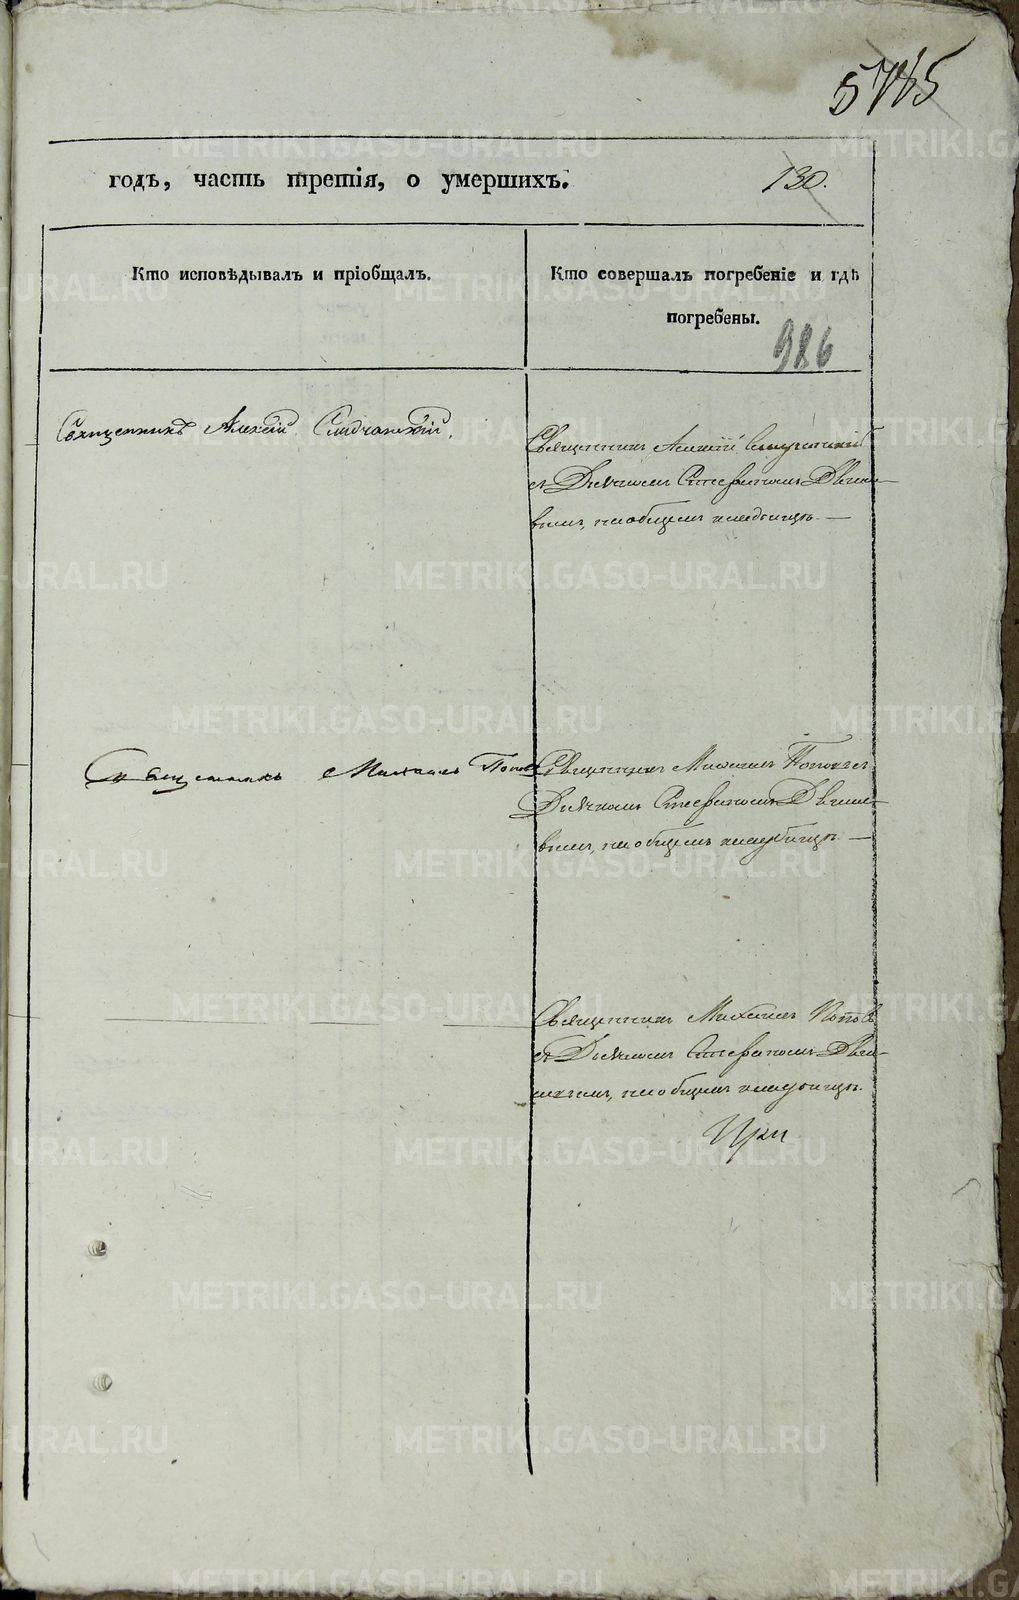 130.
годъ, часть третія, о умершихъ.
Кто исповѣдывалъ и пріобщалъ.
Кто совершалъ погребеніе и гдѣ
погребены.
986
Священникъ Алексій
Священникъ Алексій
съ Дьячкомъ Стефаномъ
на общемъ кладбищѣ.
Священникъ Михаилъ Попов
Священникъ Михаилъ Попов съ
Дьячкомъ Стефаномъ
на общемъ кладбищѣ
Священникъ Михаилъ Поповъ
съ Дьячкомъ Стефаномъ
на общемъ кладбищѣ.
При
METRIKI.GASO-URAL.RU